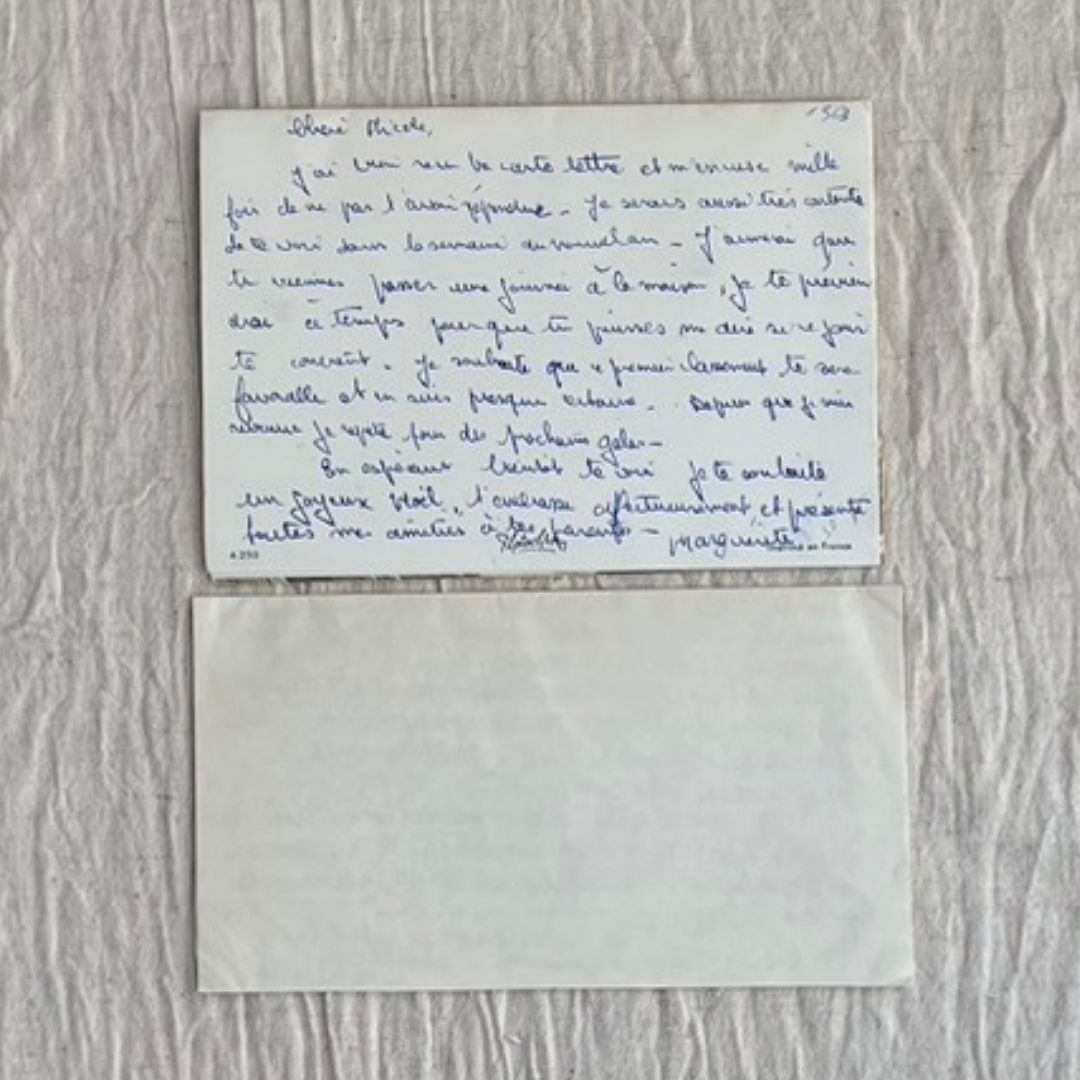 Chère Nicole,
J'ai bien reçu ta carte lettre et m'excuse mille
fois de ne pas t'avoir répondue - Je serais aussi très contente
de te voir dans la semaine du nouvel an - J'aimerai que
tu viennes passer une journée à la maison, Je te prévien
drai à temps pour que tu puisses me dire si ce jour
te convient. Je souhaite que ce premier classement te sera
favorable et en suis presque certaine. Depuis que je suis
revenue je répète pour des prochains galas -
En espérant bientôt te voir je te souhaite
un joyeux Noël, t'embrasse affectueusement et présente
toutes mes amitiés à tes parents - Marguerite
4.250
en France